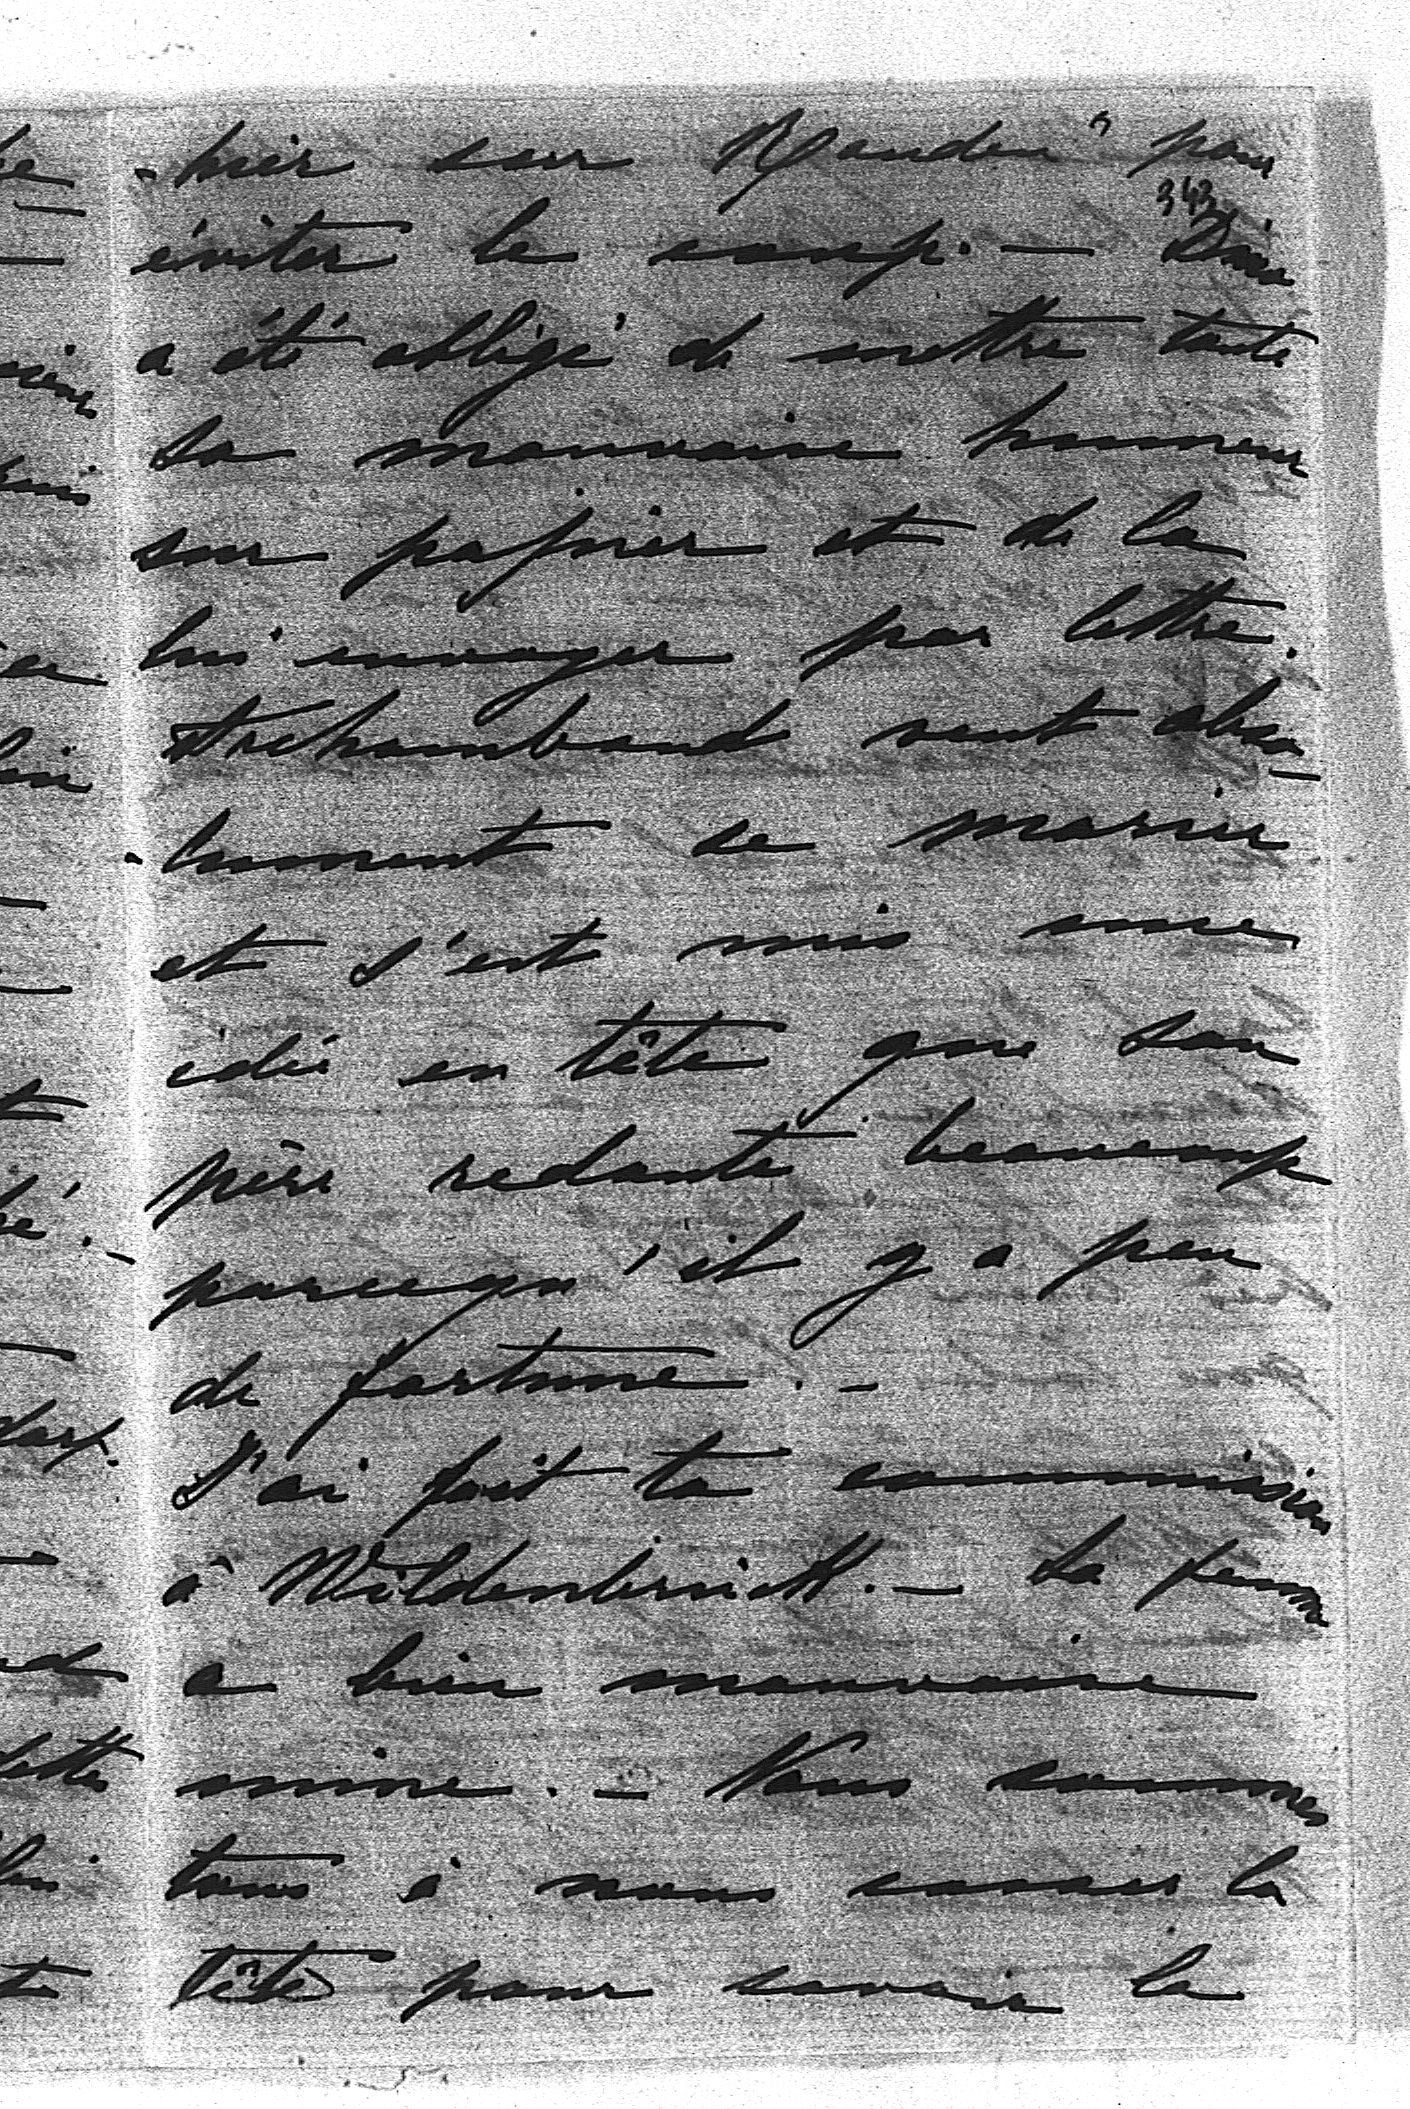 -hier sur pour
343
éviter le camp. — Dino
a été obligé de mettre toute
sa mauvaise humeur
sur papier et de la
lui envoyer par lettre.
Archambaud veut abso-
-lument se marier
et s'est mis une
idée en tête que son
père redoute beaucoup
parcequ'il y a peu
de fortune. —
J'ai fait ta commission
à Wildenbruch. — Sa femme
a bien mauvaise
mine. — Nous sommes
tous à nous casser la
tête pour savoir la